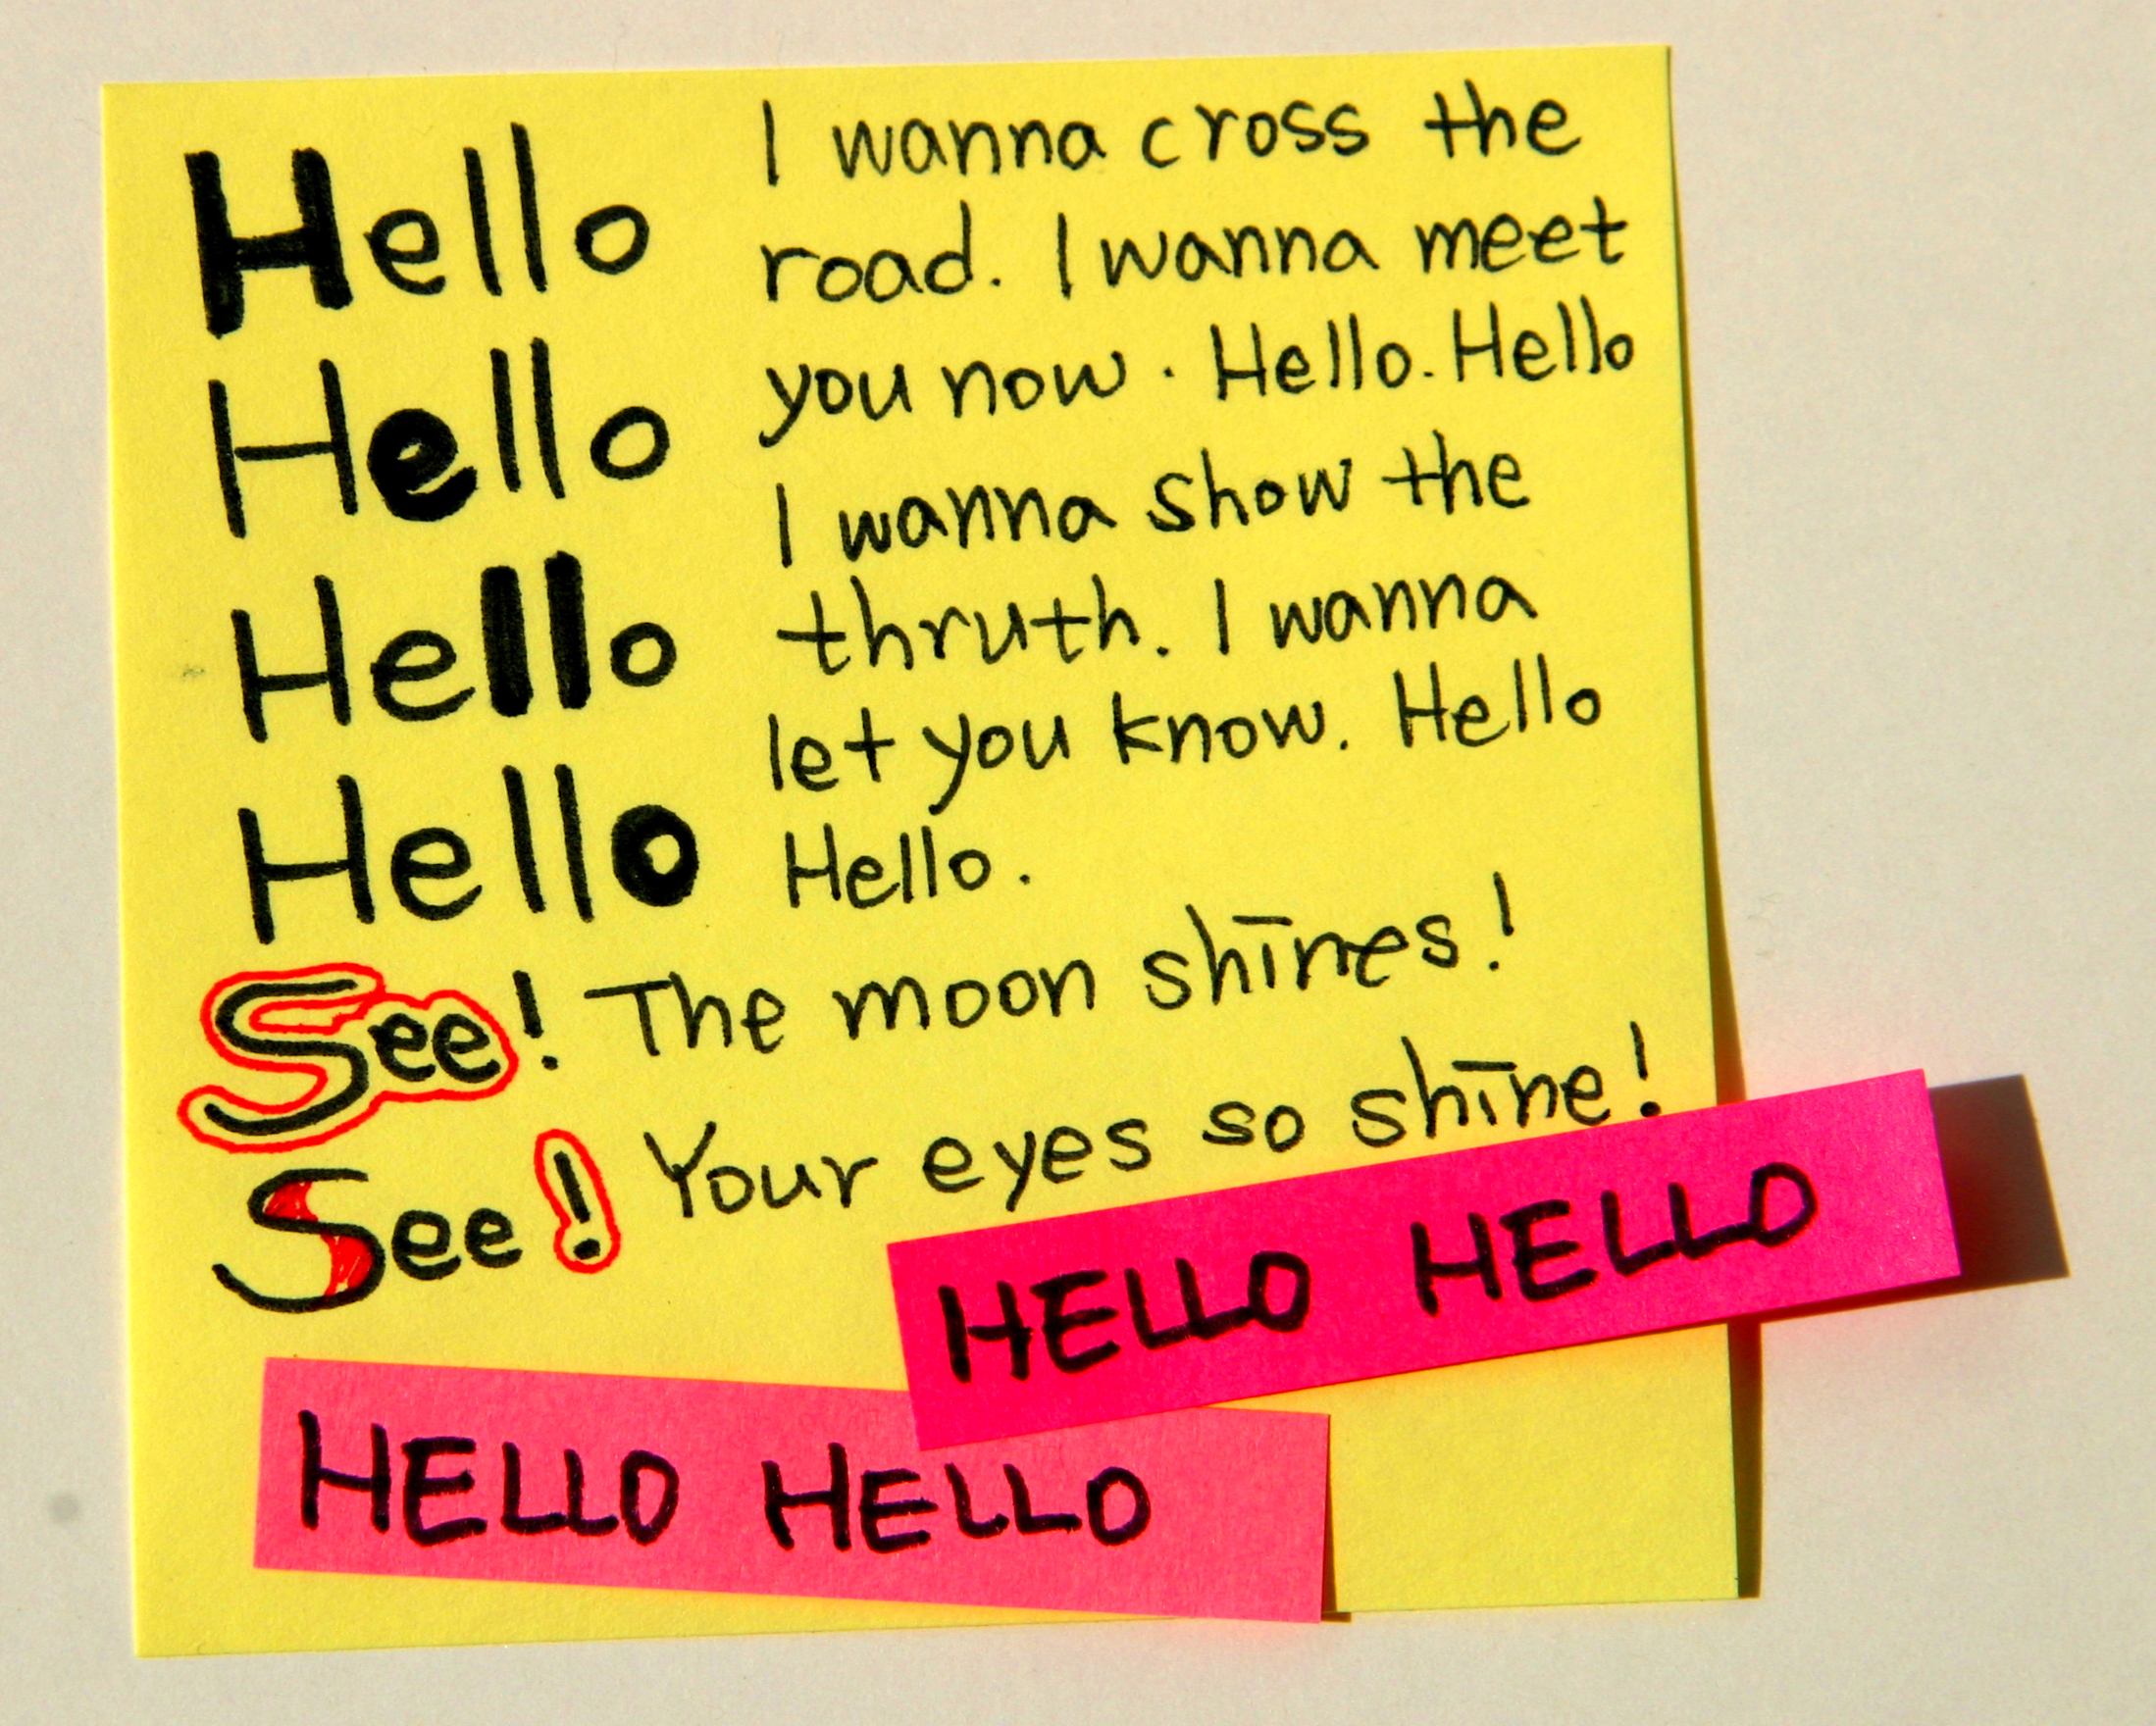 Hello
Hello
Hello
Hello
I wanna cross the
road. I wanna meet
you now. Hello. Hello
I wanna show the
thruth. I wanna
let you know. Hello
Hello.
See! The moon shines!
See! Your eyes so shine!
HELLO HELLO
HELLO HELLO